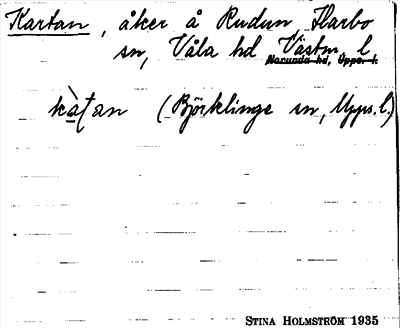 Kartan, åker å Rudun Harbo
sn, Våla hd Västm. l.
Norunda hd, Upps. l.
kàṭan (Björklinge sn, Upps. l.)
STINA HOLMSTRÖM 1935